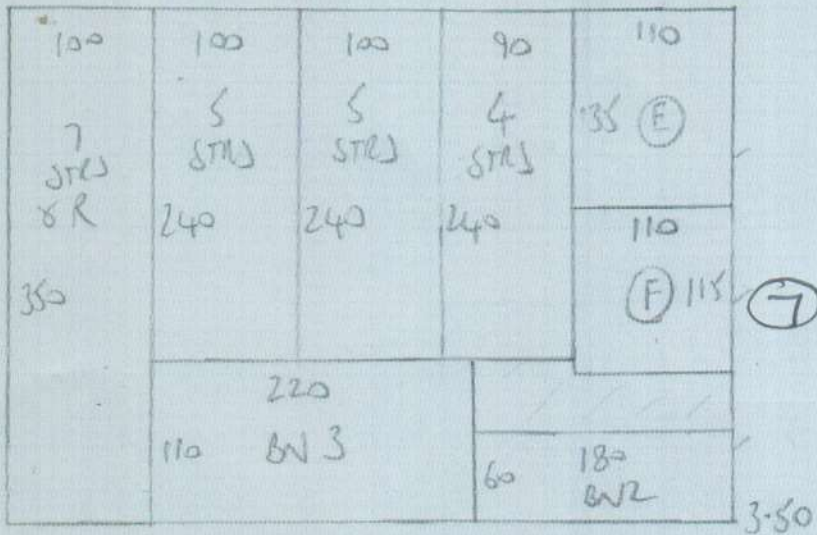 100
7
STRS
& R
350
100
5
STRS
240
100
5
STRS
240
90
4
STRS
240
110
135 E
110
F 115
7
220
110 BN 3
60 180
BN2
3.50